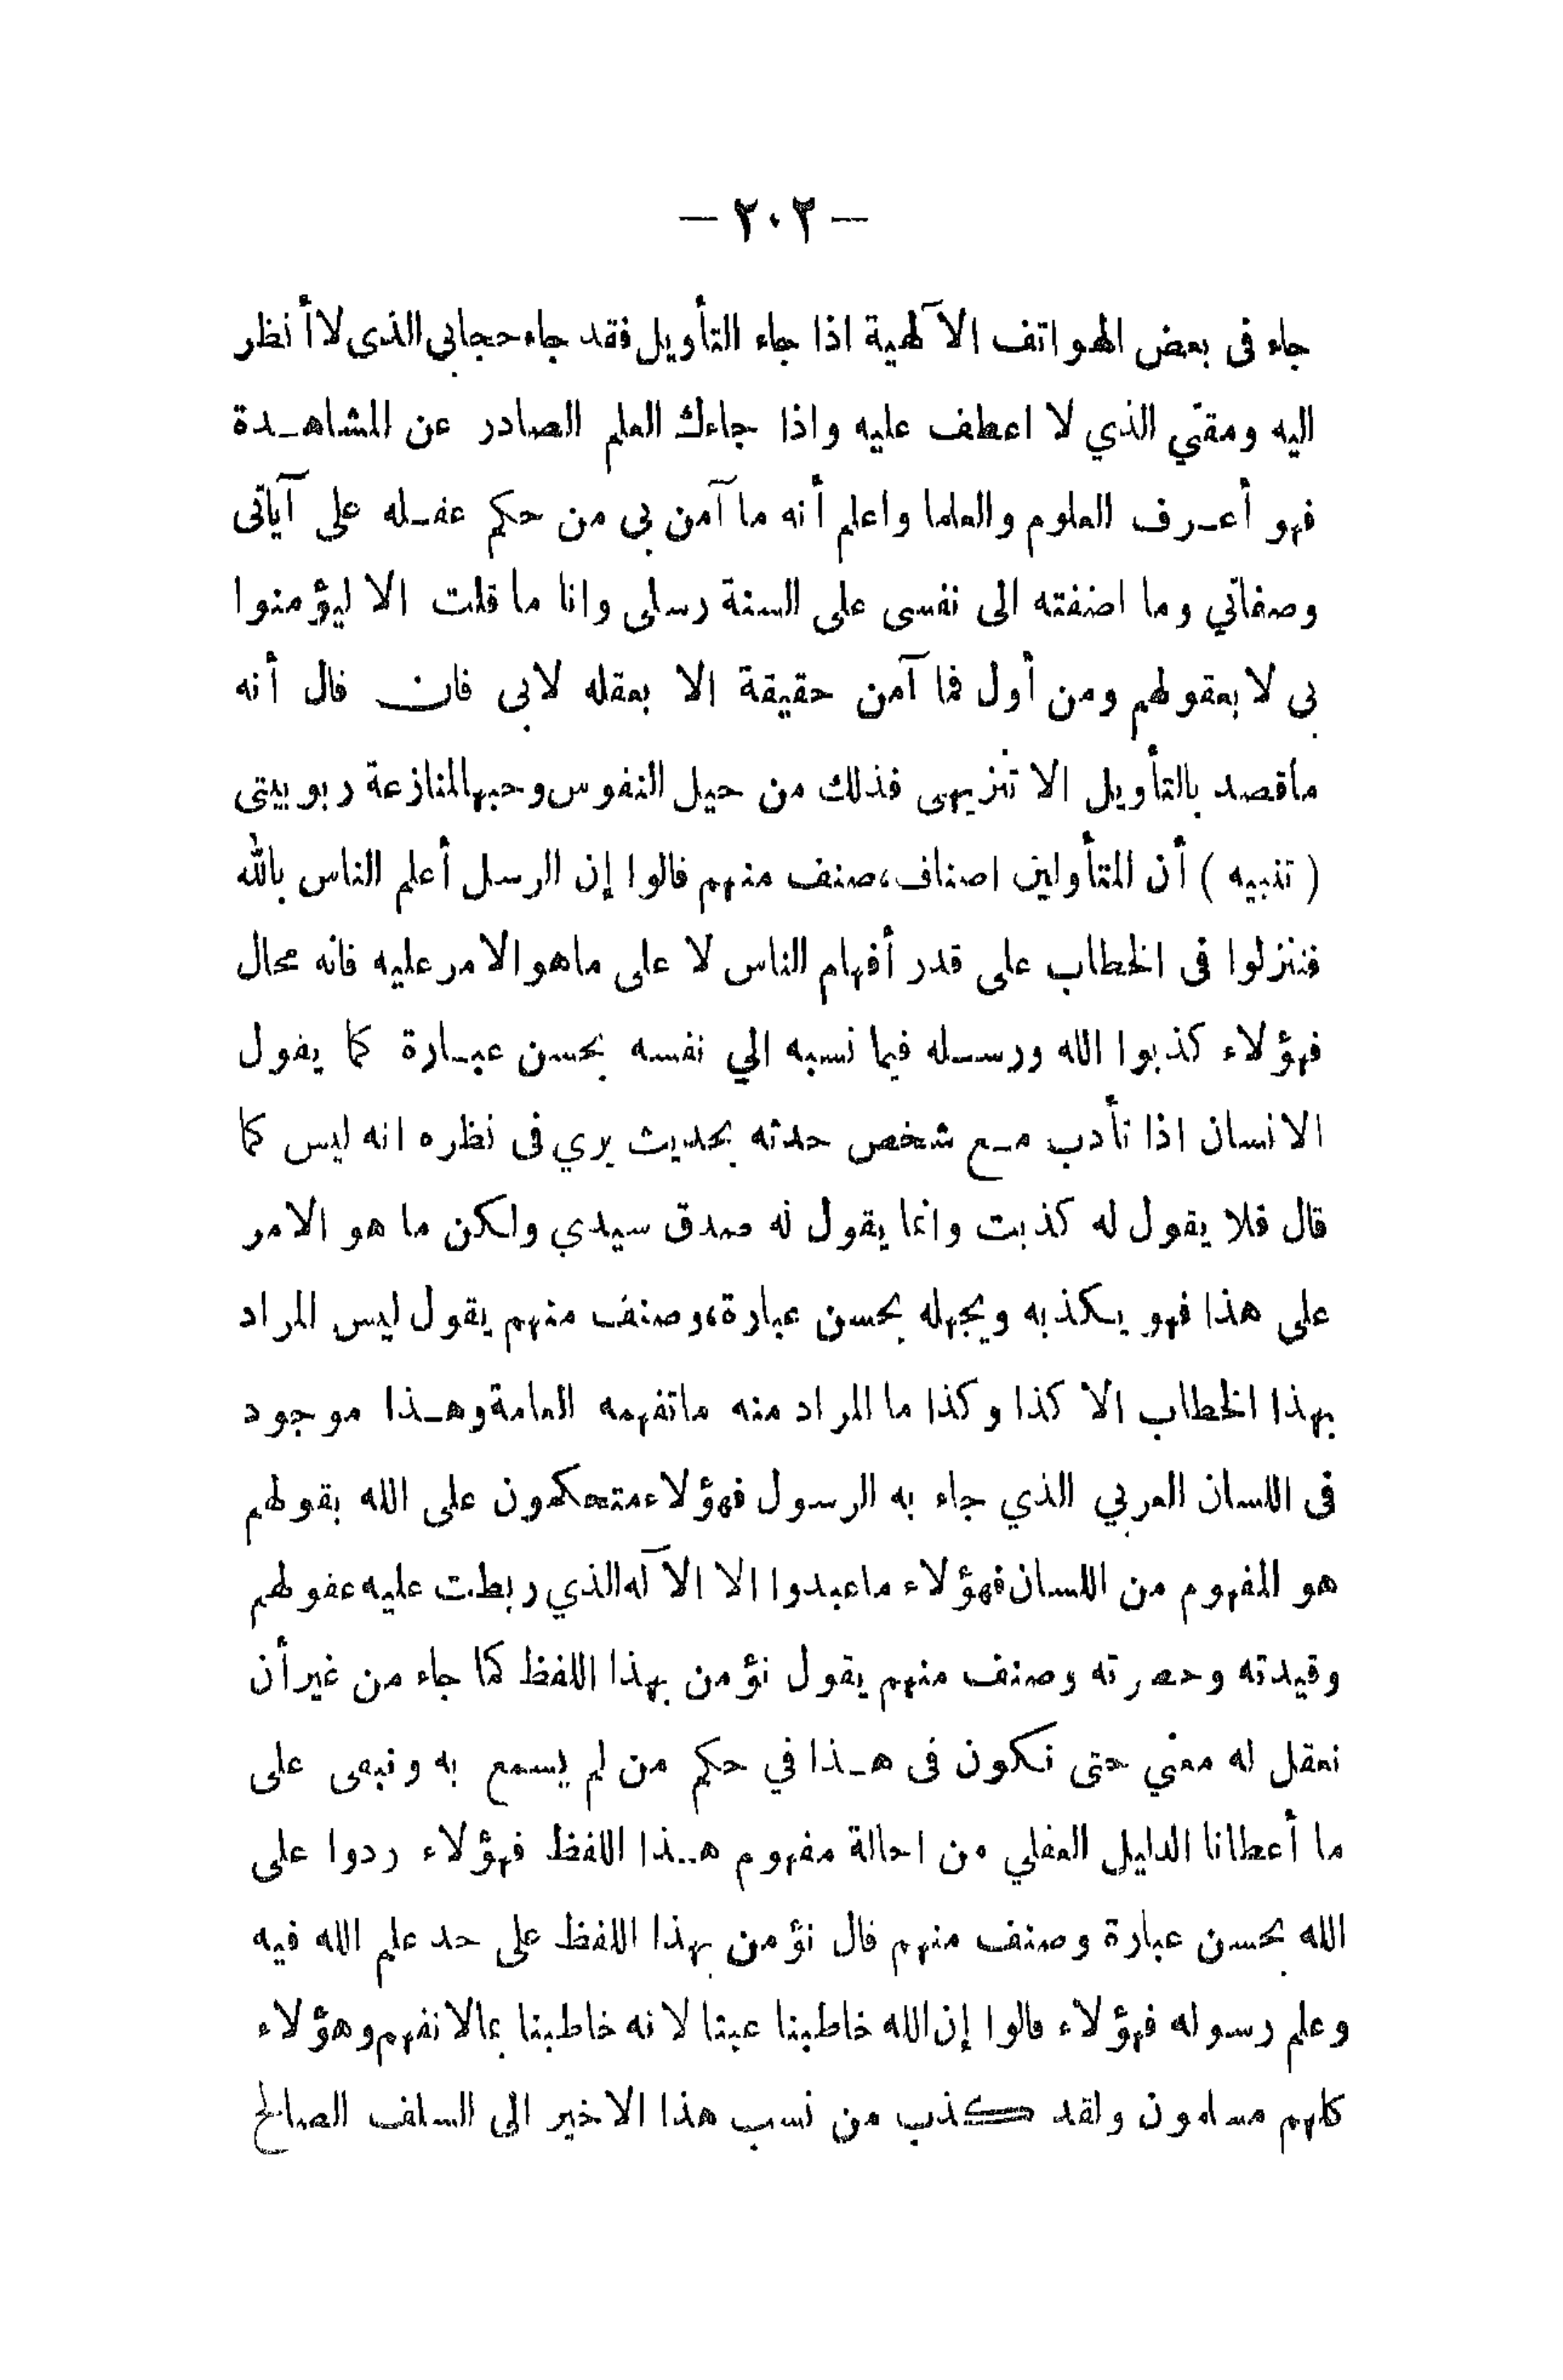 — ٢٠٢ —
جاء فى بعض الهواتف الآلهية اذا جاء التأويل فقد جاء حجابي الذى لا أنظر
اليه ومقتي الذي لا اعطف عليه واذا جاءك العلم الصادر عن المشاهدة
فهو أعرف العلوم والعلما واعلم أنه ما آمن بى من حكم عقله على آياتى
وصفاتي وما اضفته الى نفسى على السنة رسلى وانا ما قلت الا ليؤمنوا
بى لا بعقولهم ومن أول فما آمن حقيقة الا بعقله لابى فان قال أنه
ماقصد بالتأويل الا تنزيهى فذلك من حيل النفوس وحبها لمنازعة ربوبيتى
( تنبيه ) أن المتأولين اصناف، صنف منهم قالوا إن الرسل أعلم الناس بالله
فنزلوا فى الخطاب على قدر أفهام الناس لا على ماهو الامر عليه فانه محال
فهؤلاء كذبوا الله ورسله فيما نسبه الي نفسه بحسن عبارة كما يقول
الانسان اذا تأدب مع شخص حدثه بحديث يري فى نظره انه ليس كما
قال فلا يقول له كذبت وانما يقول له صدق سيدي ولكن ما هو الامر
على هذا فهو يكذبه ويجهله بحسن عبارة، وصنف منهم يقول ليس المراد
بهذا الخطاب الا كذا وكذا ما المراد منه ماتفهمه العامة وهذا موجود
فى اللسان العربي الذي جاء به الرسول فهؤلاء متحكمون على الله بقولهم
هو المفهوم من اللسان فهؤلاء ماعبدوا الا الآله الذي ربطت عليه عقولهم
وقيدته وحصرته وصنف منهم يقول نؤمن بهذا اللفظ كما جاء من غير أن
نعقل له معني حتى نكون فى هذا في حكم من لم يسمع به ونبقى على
ما أعطانا الدليل العقلي من احالة مفهوم هذا اللفظ فهؤلاء ردوا على
الله بحسن عبارة وصنف منهم قال نؤمن بهذا اللفظ على حد علم الله فيه
وعلم رسوله فهؤلاء قالوا إن الله خاطبنا عبثا لانه خاطبنا بمالانفهم وهؤلاء
كلهم مسلمون ولقد كذب من نسب هذا الاخير الى السلف الصالح